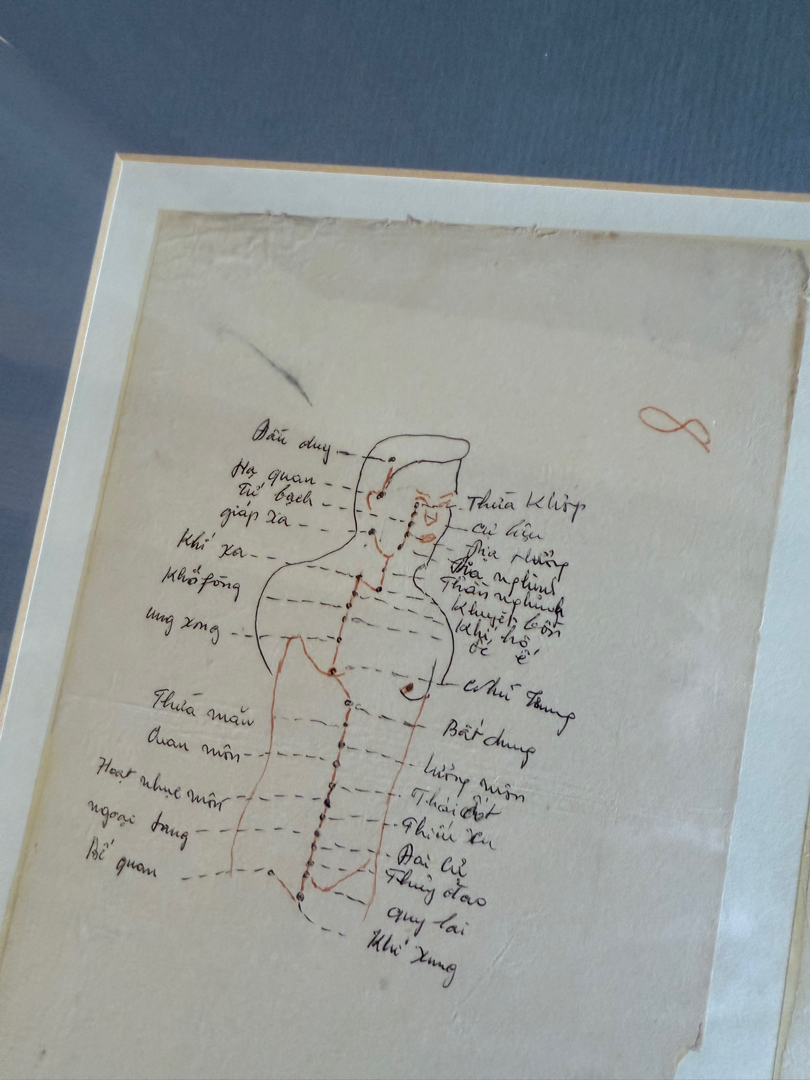 Đầu duy
Hạ quan
Tứ bạch
giáp xa
Khí xa
Khố fòng
ưng song
Thừa mãn
Quan môn
Hoạt nhục môn
ngoại lăng
Bễ quan
8
Thừa Khấp
Cự liêu
Địa thương
Đại nghinh
Thần nghinh
Khuyết bồn
Khí hộ
ốc ế
nhũ Trung
Bất dung
lương môn
Thái ất
Thiên xu
Đại cự
Thủy đạo
quy lai
Khí xung